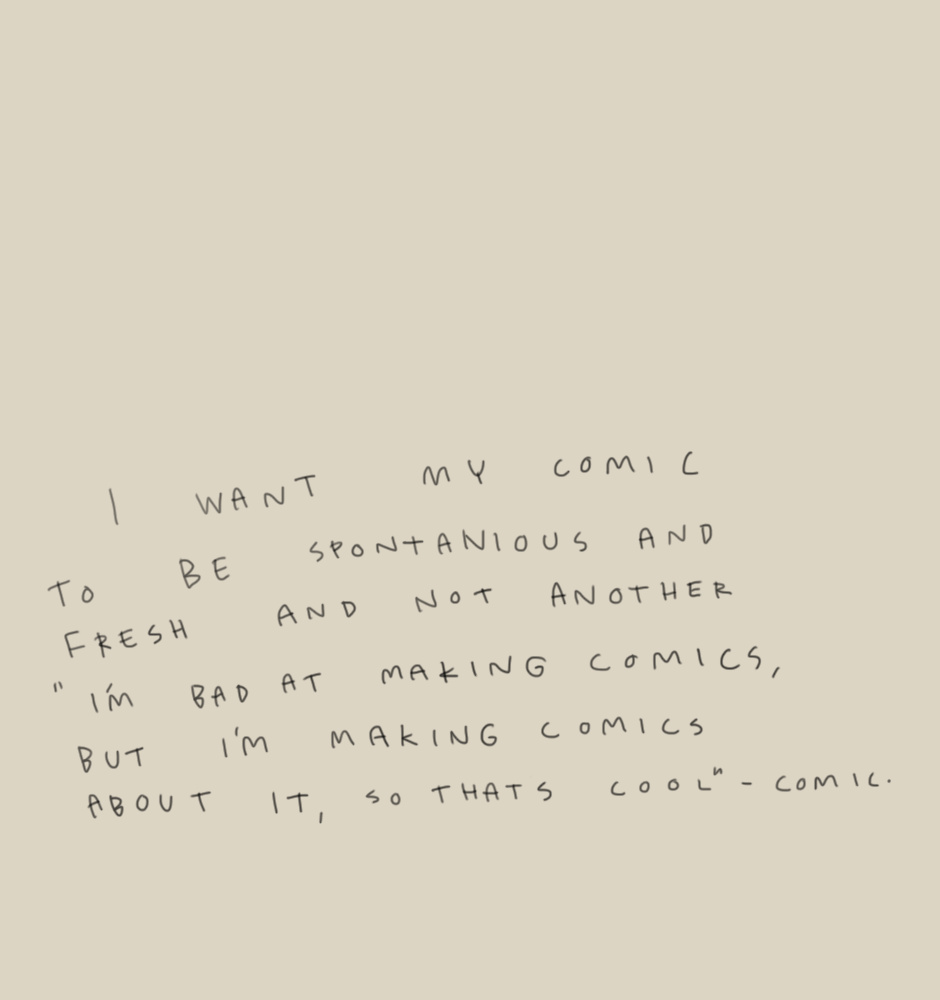 I WANT MY COMIC
TO BE SPONTANIOUS AND
FRESH AND NOT ANOTHER
" I'M BAD AT MAKING COMICS,
BUT I'M MAKING COMICS
ABOUT IT, SO THATS COOL" - COMIC.